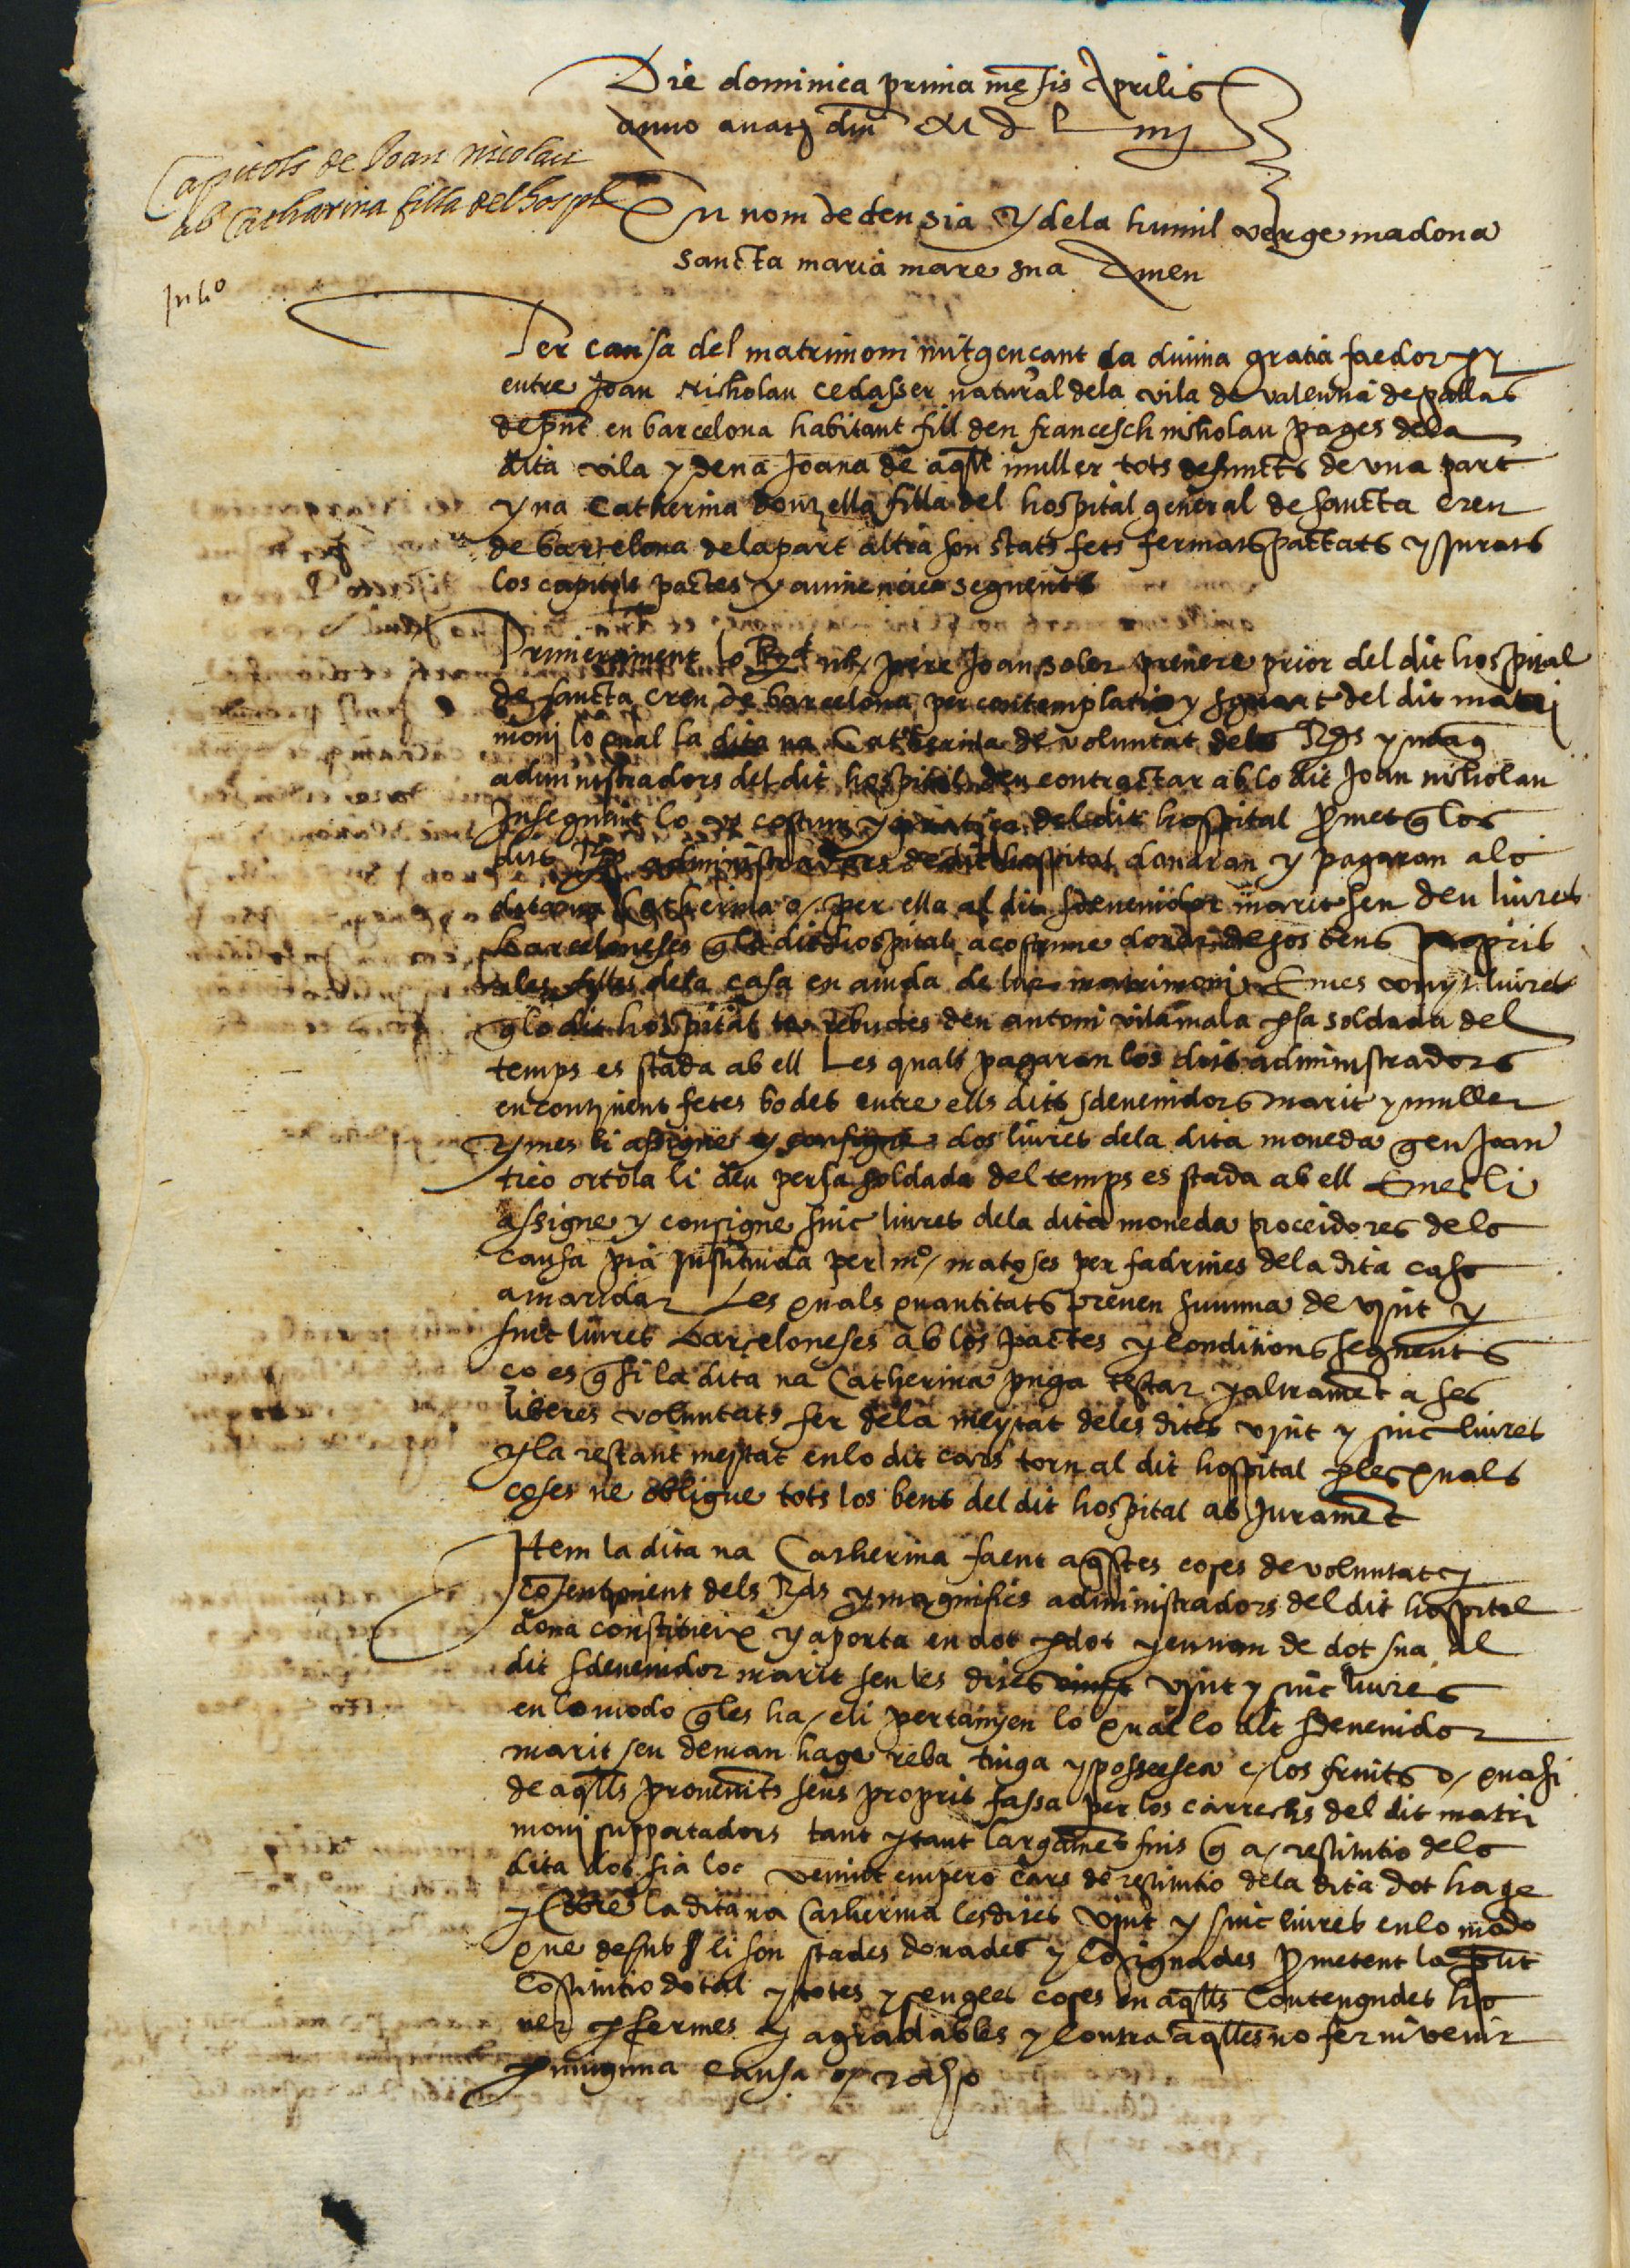 Die dominica prima mēsis Aprilis
Anno a natē dn̄i M D L iiij
Capitols de Joan nicolau
ab Catharina filla del hospl
En nom de deu sia y dela humil verge madona
sancta maria mare sua Amen
Per causa del matrimoni mitgençant la divina gratia faedor
entre Joan Nicholau cedasser natural dela vila de valentia de pallas
de pn̄t en barcelona habitant fill den francesch nicholau pages dela
dita vila y dena Joana de aq̄lle muller tots defuncts de una part
y na Catherina donzella filla del hospital general de sancta creu
de barcelona dela part altra son stats fets fermats pactats y jurats
los capitols pactes y avinençes seguents
Primerament lo Rd mr pere Joan soler prevere prior del dit hospital
de sancta creu de barcelona per contemplatio y sguart del dit matri
moni lo qual la dita na Catherina de voluntat dels Rds y
administradors del dit hospital deu contractar ab lo dit Joan nicholau
Inseguint lo us costum y pratica del dit hospital p̄met q̄ los
dits Rds administradors de dit hospital donaran y pagaran a la
dita na Catherina o per ella al dit sdevenidor marit seu deu liures
barceloneses q̄ lo dit hospital acostume donar de sos bens propris
a les filles dela casa en aiuda de lur matrimoni E mes liures
q̄ lo dit hospital te rebudes den antoni vilamala p sa soldada del
temps es stada ab ell Les quals pagaran los dits administradors
encontinent fetes bodes entre ells dits sdevenidors marit y muller
y mes li assigne y consigne dos liures dela dita moneda q̄ en Joan
tico ortola li deu per sa soldada del temps es stada ab ell E mes li
assigne y consigne sinc liures dela dita moneda proceidores dela
causa pia instituida per mo matoses per fadrines dela dita casa
a maridar Les quals quantitats prenen summa de vint y
sinc liures barceloneses ab los pactes y conditions seguents
ço es q̄ si la dita na Catherina puga testar y altrament a ses
liberes voluntats fer dela meytat deles dites vint y sinc liures
y la restant meytat en lo dit cars torn al dit hospital p les quals
coses ne obligue tots los bens del dit hospital ab Jurament
Item la dita na Catherina faent aq̄stes coses de voluntat y
cōsentiment dels Rds y magnifics administradors del dit hospital
dona constitueix y aporta en dot p dot y en nom de dot sua al
dit sdevenidor marit seu les dites vint y sinc liures
en lo modo q̄ les ha e li pertanyen lo qual lo dit sdevenidor
marit seu deman hage reba tinga y possesea e los fruits o quasi
de aq̄lls provenints seus propris fassa per los carrechs del dit matri
moni supportadors tant y tant largamēt fins q̄ a restitutio dela
dita dot sia loc venint empero cars de restitutio dela dita dot hage
y cobre la dita na Catherina les dites vint y sinc liures en lo modo
que desus li son stades donades y cōsignades p̄metent la pn̄t
cōstitutio dotal y totes y sengles coses en aq̄lls contengudes ha
ver p fermes y agradables y contra aq̄lles no fer ni venir
p ninguna causa o raho